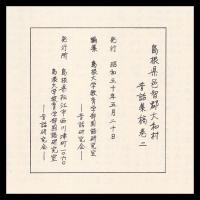 島根県邑智郡大和村
昔話集稿 巻二
発行 昭和五十年五月二十日
編集 島根大学教育学部国語研究室
―昔話研究会―
発行所 島根県松江市西川津町一〇六〇
島根大学教育学部国語研究室
―昔話研究会―